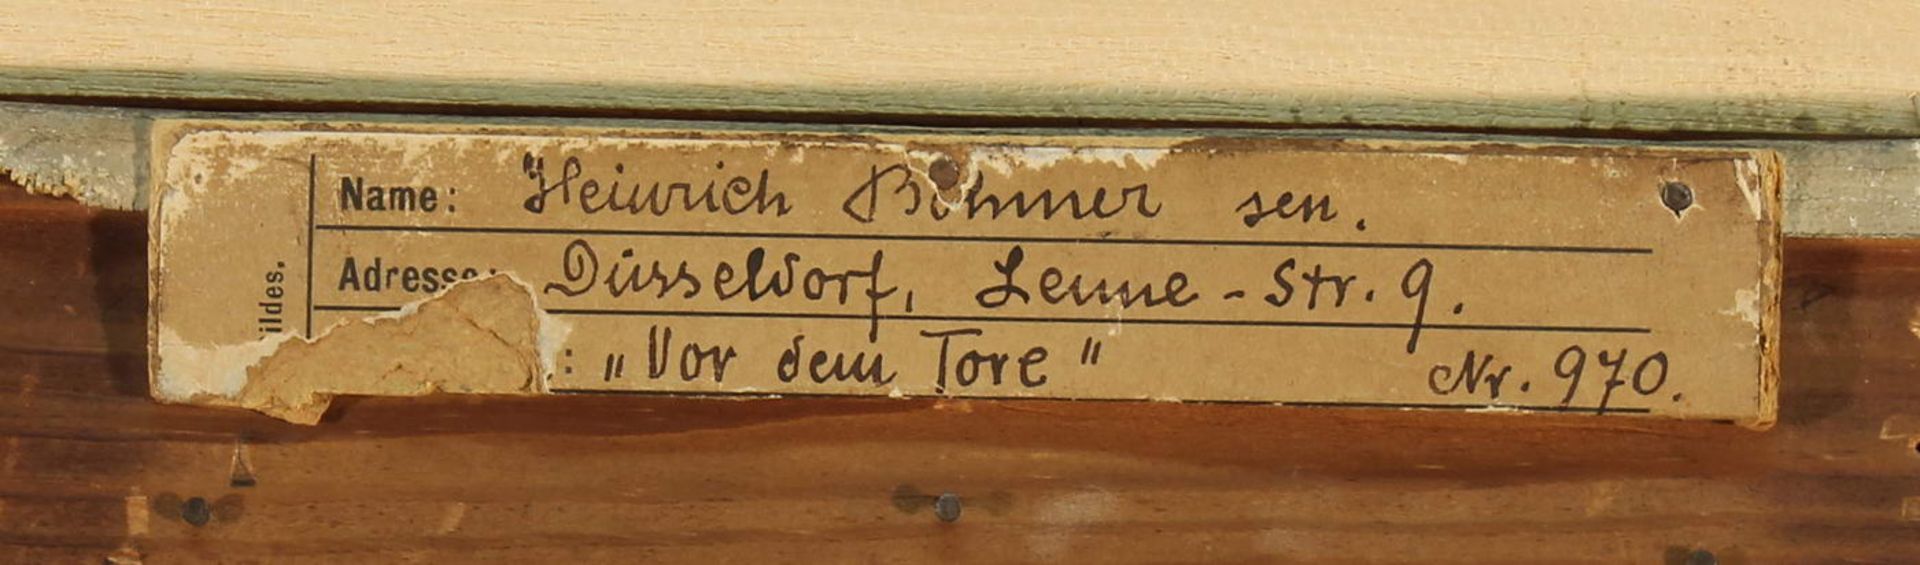 Name: Heinrich Böhmer sen.
Adresse: Düsseldorf, Lenne-Str. 9.
: „Vor dem Tore" Nr. 970.
ildes.